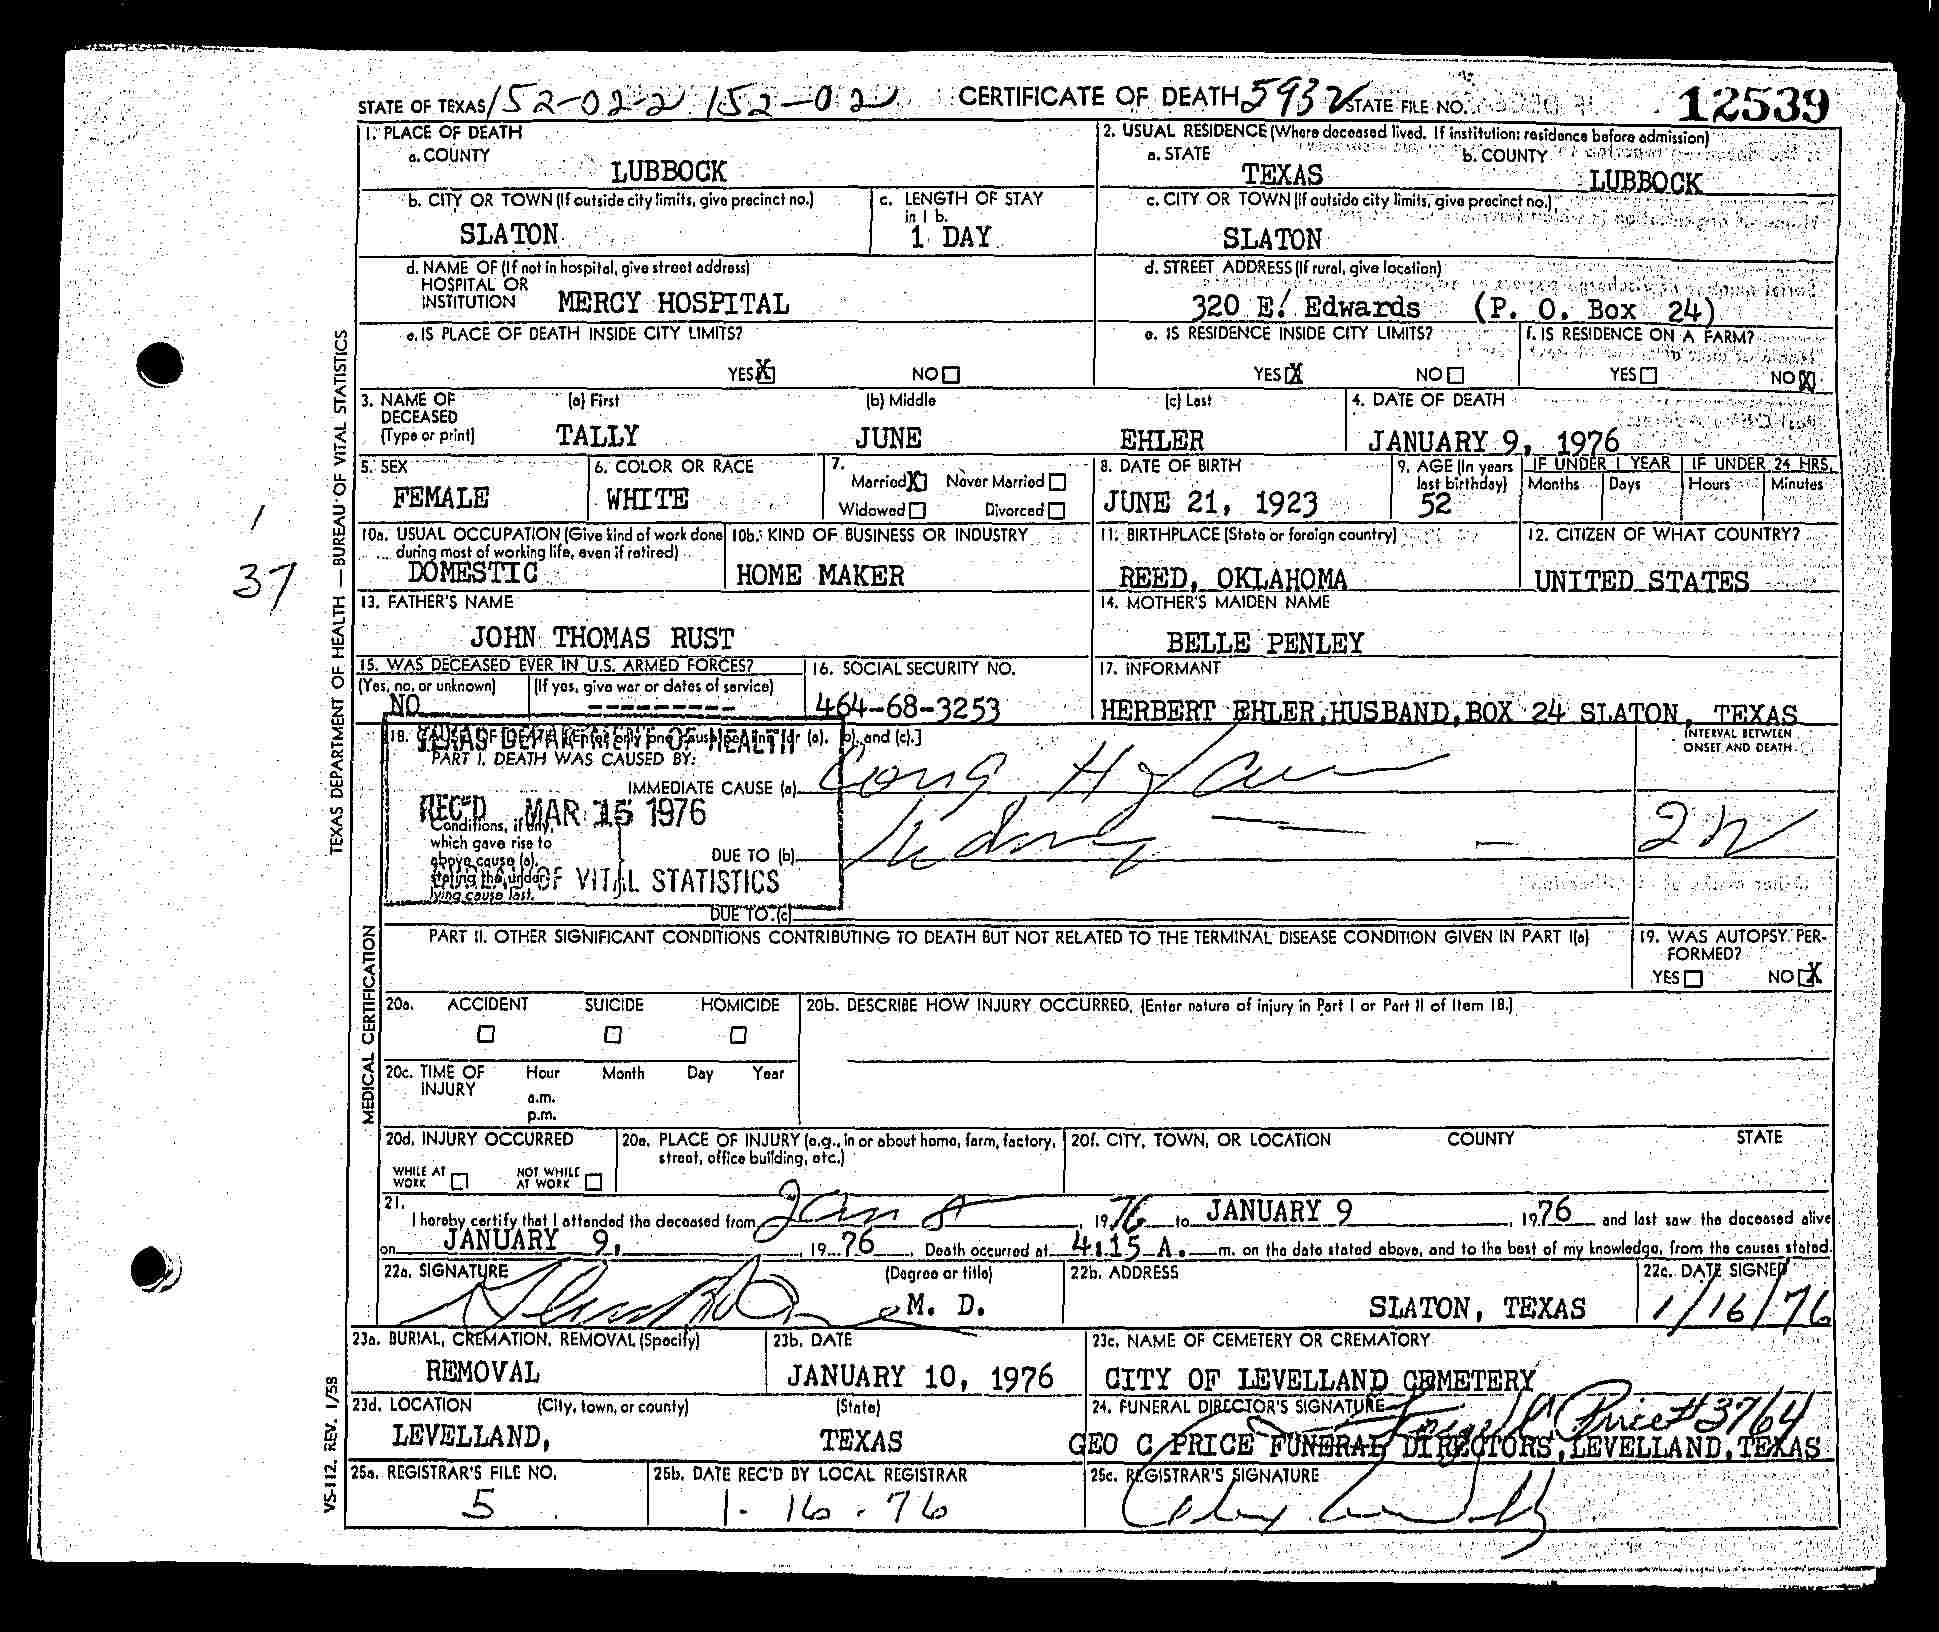 STATE OF TEXAS 152-02-2 152-02 CERTIFICATE OF DEATH 5932 STATE FILE NO. 12539
1. PLACE OF DEATH
a. COUNTY
LUBBOCK
2. USUAL RESIDENCE (Where deceased lived. If institution: residence before admission)
a. STATE b. COUNTY
TEXAS LUBBOCK
b. CITY OR TOWN (If outside city limits, give precinct no.) c. LENGTH OF STAY in 1 b.
SLATON 1 DAY
c. CITY OR TOWN (If outside city limits, give precinct no.)
SLATON
d. NAME OF (If not in hospital, give street address)
HOSPITAL OR
INSTITUTION MERCY HOSPITAL
d. STREET ADDRESS (If rural, give location)
320 E. Edwards (P. O. Box 24)
e. IS PLACE OF DEATH INSIDE CITY LIMITS?
YES X NO
e. IS RESIDENCE INSIDE CITY LIMITS? f. IS RESIDENCE ON A FARM?
YES X NO YES NO X
3. NAME OF DECEASED (Type or print) (a) First (b) Middle (c) Last
TALLY JUNE EHLER
4. DATE OF DEATH
JANUARY 9, 1976
5. SEX
FEMALE
6. COLOR OR RACE
WHITE
7.
Married X Never Married
Widowed Divorced
8. DATE OF BIRTH
JUNE 21, 1923
9. AGE (In years last birthday)
52
IF UNDER 1 YEAR IF UNDER 24 HRS.
Months Days Hours Minutes
10a. USUAL OCCUPATION (Give kind of work done
during most of working life, even if retired)
DOMESTIC
10b. KIND OF BUSINESS OR INDUSTRY
HOME MAKER
11. BIRTHPLACE (State or foreign country)
REED, OKLAHOMA
12. CITIZEN OF WHAT COUNTRY?
UNITED STATES
13. FATHER'S NAME
JOHN THOMAS RUST
14. MOTHER'S MAIDEN NAME
BELLE PENLEY
15. WAS DECEASED EVER IN U.S. ARMED FORCES?
(Yes, no, or unknown) (If yes, give war or dates of service)
NO ---------
16. SOCIAL SECURITY NO.
464-68-3253
17. INFORMANT
HERBERT EHLER, HUSBAND, BOX 24 SLATON, TEXAS
18.
TEXAS DEPARTMENT OF HEALTH
(a), (b), and (c).]
INTERVAL BETWEEN
ONSET AND DEATH
PART I. DEATH WAS CAUSED BY:
IMMEDIATE CAUSE (a)
REC'D MAR 15 1976
Conditions, if any,
which gave rise to
above cause (a),
stating the under-
lying cause last.
DUE TO (b) Kidney
OF VITAL STATISTICS
DUE TO (c)
PART II. OTHER SIGNIFICANT CONDITIONS CONTRIBUTING TO DEATH BUT NOT RELATED TO THE TERMINAL DISEASE CONDITION GIVEN IN PART I(a)
19. WAS AUTOPSY PER-
FORMED?
YES NO X
20a. ACCIDENT SUICIDE HOMICIDE
20b. DESCRIBE HOW INJURY OCCURRED. (Enter nature of injury in Part I or Part II of Item 18.)
20c. TIME OF INJURY Hour Month Day Year
a.m.
p.m.
20d. INJURY OCCURRED
WHILE AT WORK NOT WHILE AT WORK
20e. PLACE OF INJURY (e.g., in or about home, farm, factory,
street, office building, etc.)
20f. CITY, TOWN, OR LOCATION COUNTY STATE
21.
I hereby certify that I attended the deceased from Jan 1976 to JANUARY 9, 1976 and last saw the deceased alive
on JANUARY 9, 1976. Death occurred at 4:15 A. m. on the date stated above, and to the best of my knowledge, from the causes stated.
22a. SIGNATURE (Degree or title)
M. D.
22b. ADDRESS
SLATON, TEXAS
22c. DATE SIGNED
1/16/76
23a. BURIAL, CREMATION, REMOVAL (Specify)
REMOVAL
23b. DATE
JANUARY 10, 1976
23c. NAME OF CEMETERY OR CREMATORY
CITY OF LEVELLAND CEMETERY
23d. LOCATION (City, town, or county) (State)
LEVELLAND, TEXAS
24. FUNERAL DIRECTOR'S SIGNATURE
Price #3764
GEO C PRICE FUNERAL DIRECTORS, LEVELLAND, TEXAS
25a. REGISTRAR'S FILE NO.
5
25b. DATE REC'D BY LOCAL REGISTRAR
1. 16. 76
25c. REGISTRAR'S SIGNATURE
TEXAS DEPARTMENT OF HEALTH — BUREAU OF VITAL STATISTICS
MEDICAL CERTIFICATION
VS-112. REV. 1/58
1
37